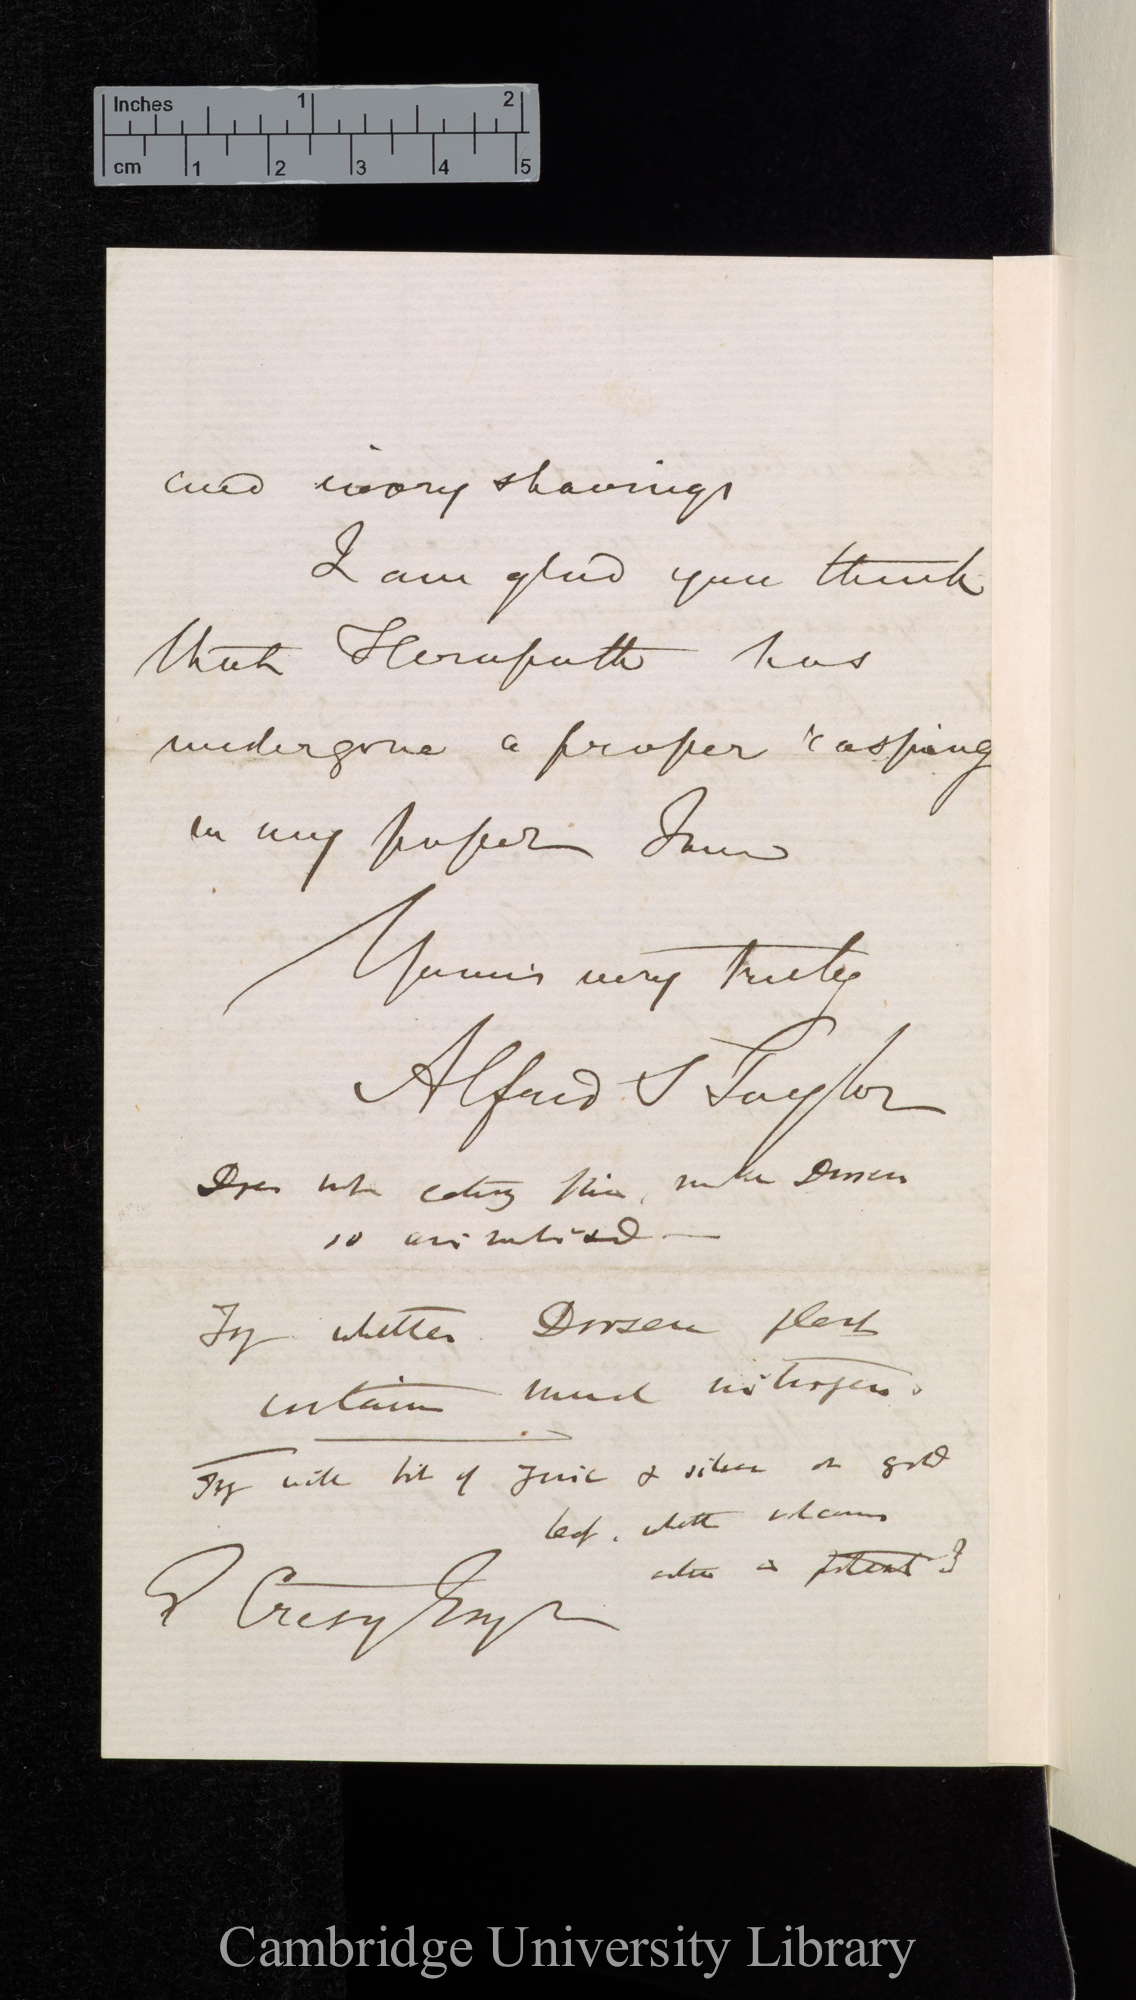 Inches 1 2
cm 1 2 3 4 5
and ivory shavings
I am glad you think
that Herapath has
undergone a proper rasping
in my paper I am
Yours very truly
Alfred S Taylor
Does not eating flies, make Drosera
so animalised —
Try whether Drosera plant
contain much nitrogen.
Try with bit of zinc & silver or gold
leaf, whether
action is
E Cresy Esqr
Cambridge University Library